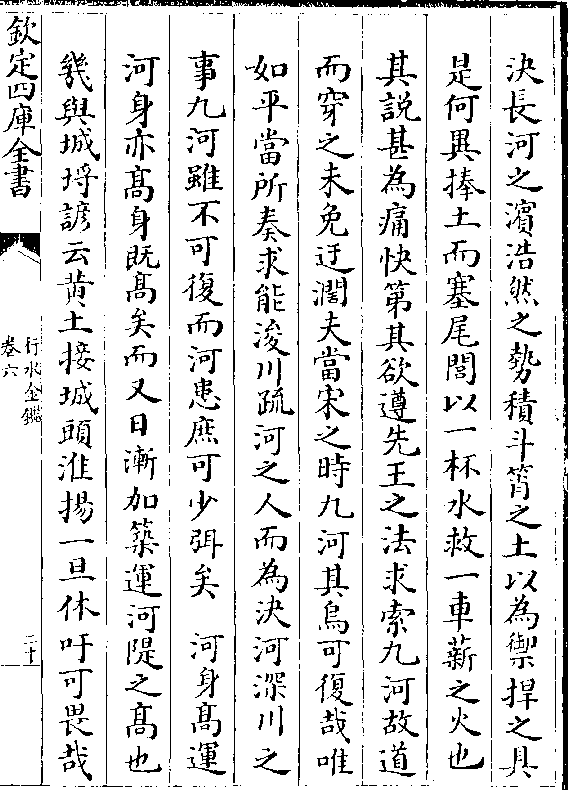 決長河之濵浩然之勢積斗筲之土以為禦捍之具
是何異捧土而塞尾閭以一杯水救一車薪之火也
其説甚為痛快第其欲遵先王之法求索九河故道
而穿之未免迂濶夫當宋之時九河其烏可復哉唯
如平當所奏求能浚川疏河之人而為決河深川之
事九河雖不可復而河患庶可少弭矣　河身髙運
河身亦髙身既髙矣而又日漸加築運河隄之髙也
幾與城埒諺云黄土接城頭淮揚一旦休吁可畏哉
欽定四庫全書
行水金鑑
卷六
二十